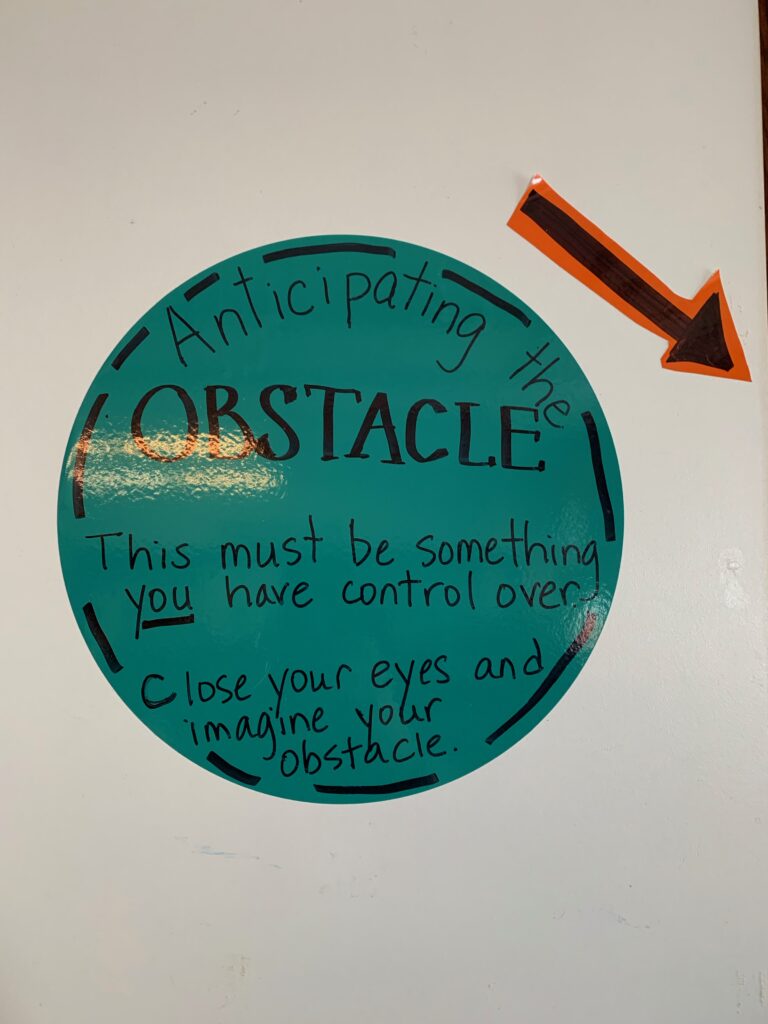 Anticipating the
OBSTACLE
This must be something
you have control over.
Close your eyes and
imagine your
obstacle.